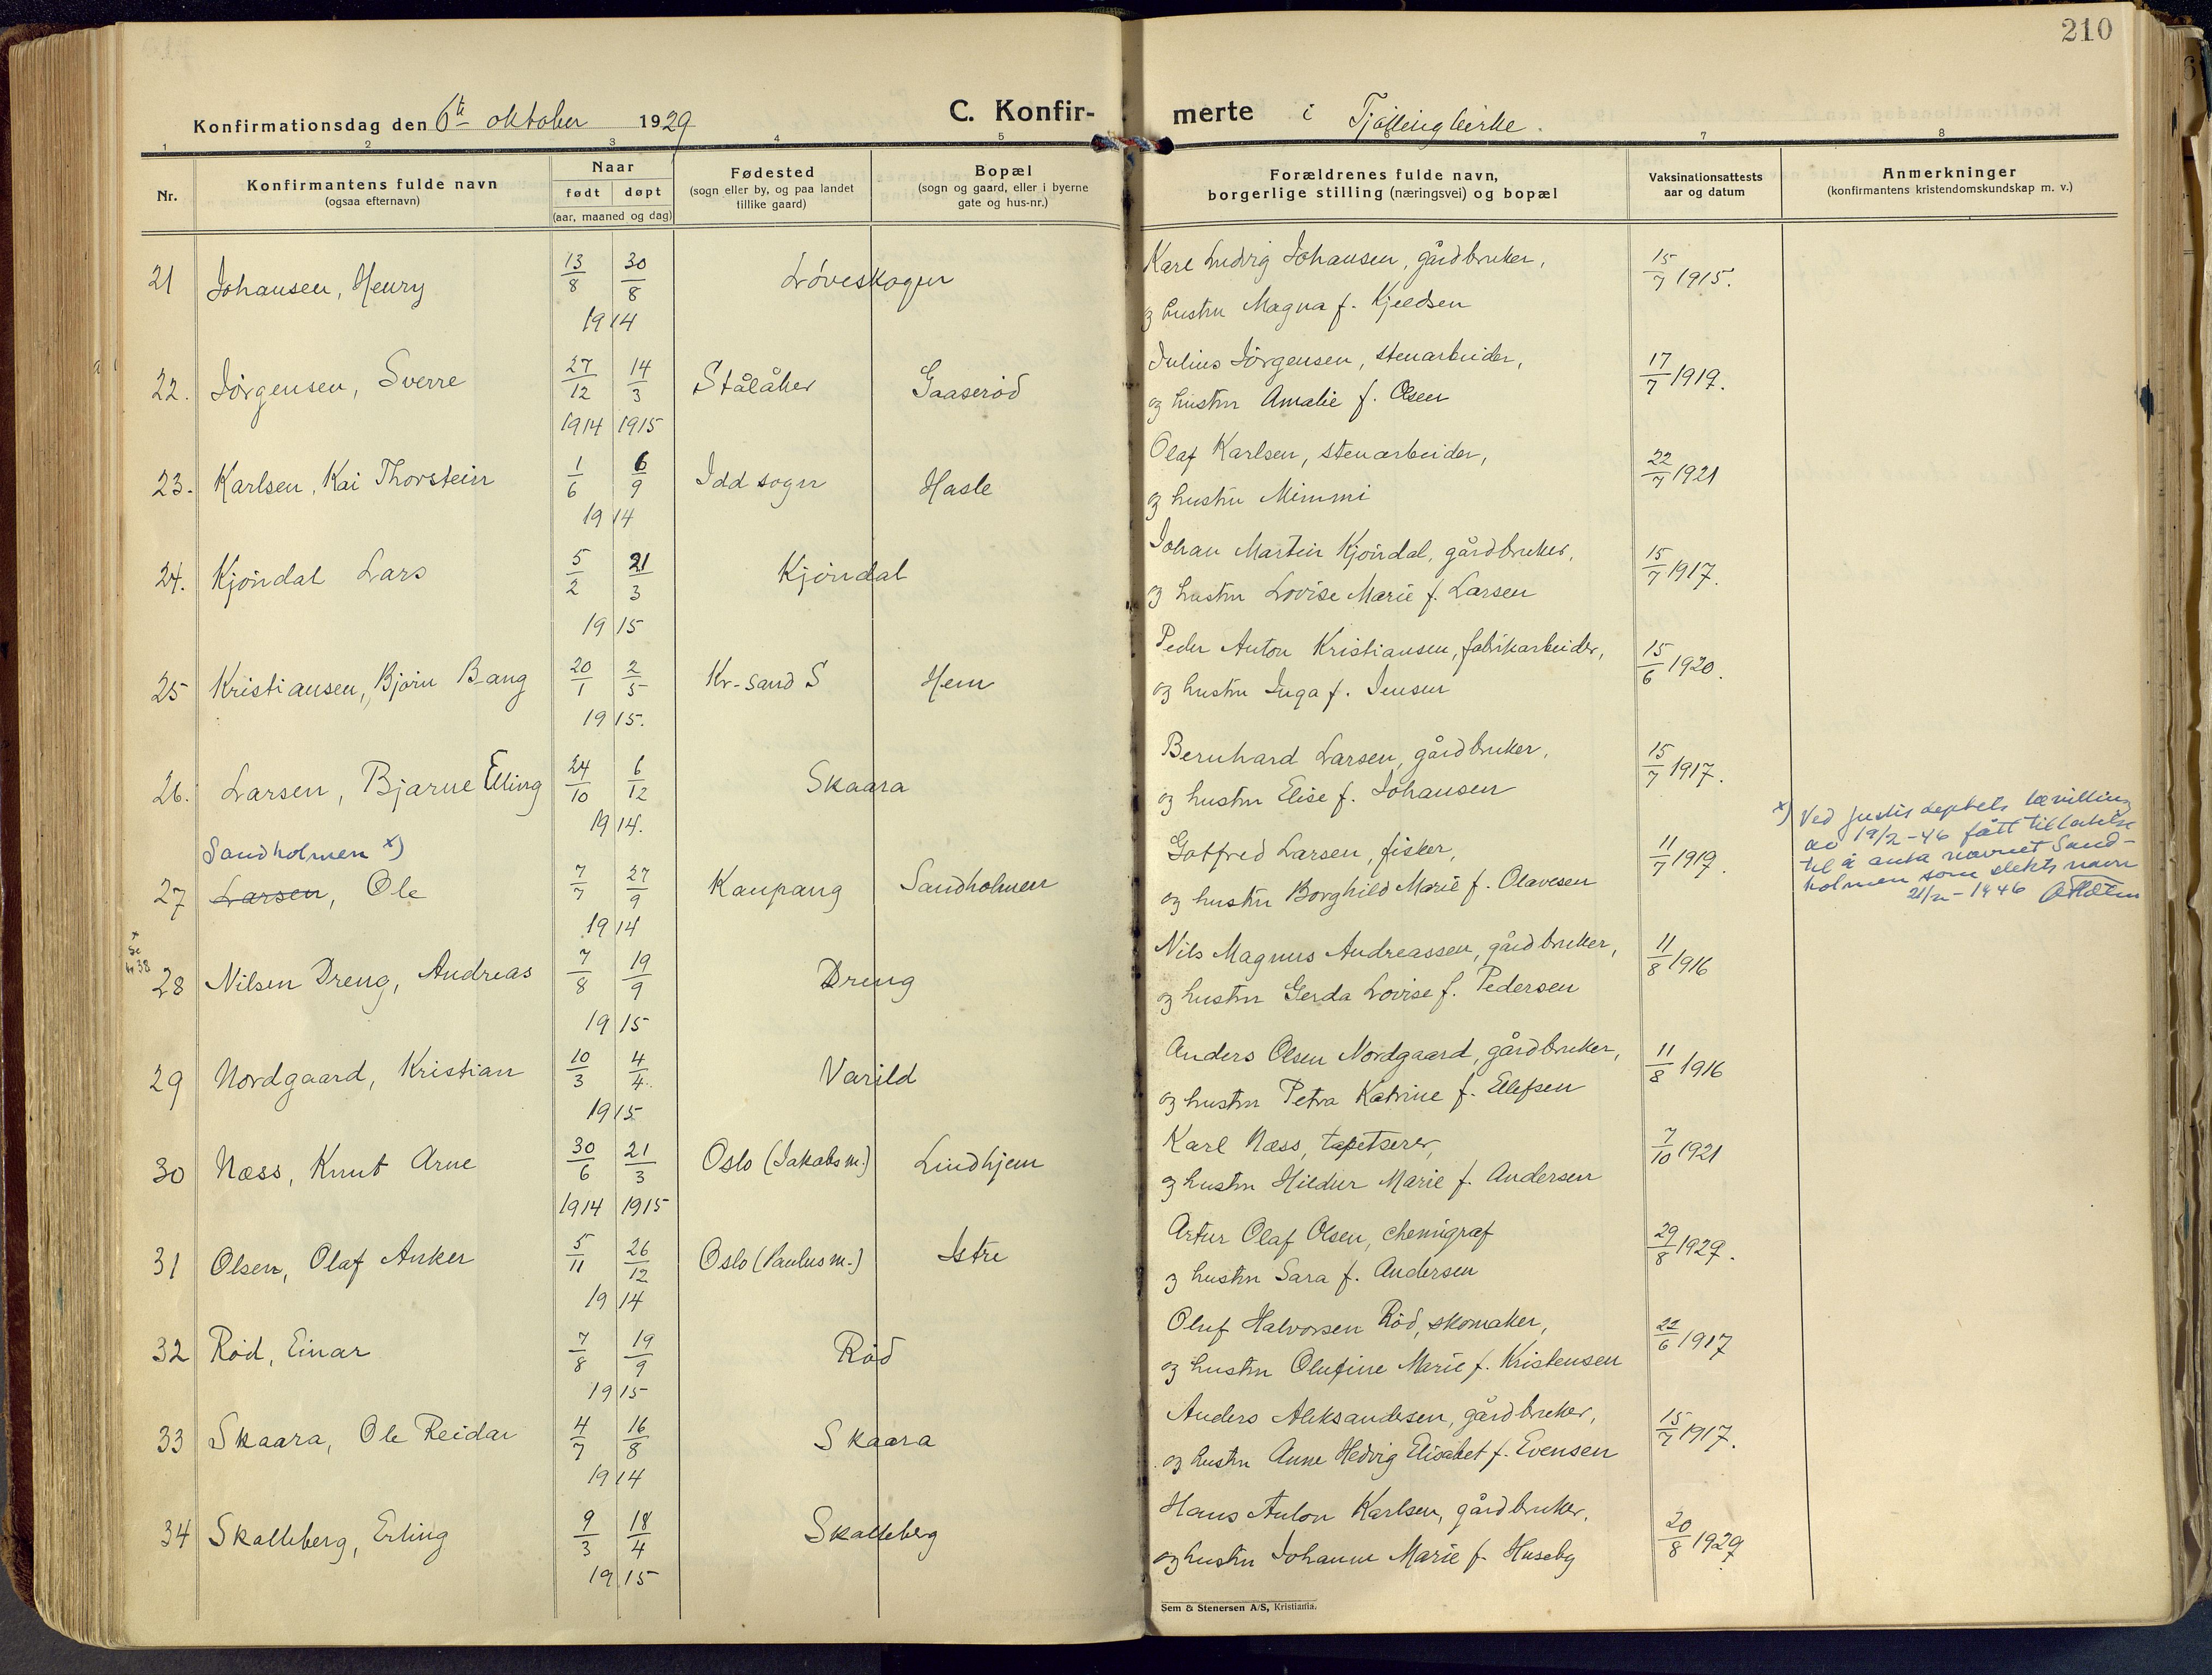 210
Konfirmationsdag den 6te oktober 1929
C. Konfir-
merte i Tjölling kirke.
1 2 3 4 5 7 8
Nr.
Konfirmantens fulde navn
(ogsaa efternavn)
Naar
født døpt
(aar, maaned og dag)
Fødested
(sogn eller by, og paa landet
tillike gaard)
Bopæl
(sogn og gaard, eller i byerne
gate og hus-nr.)
Forældrenes fulde navn,
borgerlige stilling (næringsvei) og bopæl
Vaksinationsattests
aar og datum
Anmerkninger
(konfirmantens kristendomskundskap m. v.)
21 Johansen, Henry 13/8 30/8 1914 Løveskogen
Karl Ludvig Johansen, gårdbruker, 15/7 1915.
og hustru Magna f. Kjeldsen
22. Jörgensen, Sverre 27/12 1914 14/3 1915 Stålåker Gaaseröd
Julius Jörgensen, stenarbeider, 17/7 1919.
og hustru Amalie f. Olsen
23. Karlsen, Kai Thorstein 1/6 6/9 1914 Idd sogn Hasle
Olaf Karlsen, stenarbeider, 22/7 1921
og hustru Mimmi
24. Kjöndal Lars 5/2 21/3 1915 Kjöndal
Johan Martin Kjöndal, gårdbruker, 15/7 1917.
og hustru Lovise Marie f. Larsen
25 Kristiansen, Björn Bang 20/1 2/5 1915. Kr-sand S Hem
Peder Anton Kristiansen, fabrikarbeider, 15/6 1920.
og hustru Inga f. Jensen
26. Larsen, Bjarne Elling 24/10 6/12 1914. Skaara
Bernhard Larsen, gårdbruker, 15/7 1917.
og hustru Elise f. Johansen
Sandholmen x)
27 Larsen, Ole 7/7 27/9 1914 Kaupang Sandholmen
Gotfred Larsen, fisker, 11/7 1919.
og hustru Borghild Marie f. Olavesen
x) Ved Justisdeptets bevilling
av 19/2-46 fått tillatelse
til å anta navnet Sand-
holmen som slektsnavn
21/2-1946
x
Se
nr 38
28 Nilsen Dreng, Andreas 7/8 19/9 1915 Dreng
Nils Magnus Andreassen, gårdbruker, 11/8 1916
og hustru Gerda Lovise f. Pedersen
29 Nordgaard, Kristian 10/3 4/4. 1915 Varild
Anders Olsen Nordgaard, gårdbruker, 11/8 1916
og hustru Petra Katrine f. Ellefsen
30 Næss, Knut Arne 30/6 1914 21/3 1915 Oslo (Jakobs m.) Lindhjem
Karl Næss, tapetserer, 7/10 1921
og hustru Hildur Marie f. Andersen
31 Olsen, Olaf Anker 5/11 26/12 1914 Oslo (Paulus m.) Istre
Artur Olaf Olsen, chemigraf 29/8 1929.
og hustru Sara f. Andersen
32 Röd, Einar 7/8 19/9 1915 Röd
Oluf Halvorsen Röd, skomaker, 22/6 1917
og hustru Olufine Marie f. Kristensen
33 Skaara, Ole Reidar 4/7 16/8 1914 Skaara
Anders Aleksandersen, gårdbruker, 15/7 1917.
og hustru Anne Hedvig Elisabet f. Evensen
34 Skalleberg, Erling 9/3 18/4 1915 Skalleberg
Hans Anton Karlsen, gårdbruker, 20/8 1929.
og hustru Johanne Marie f. Huseby
Sem & Stenersen A/S, Kristiania.